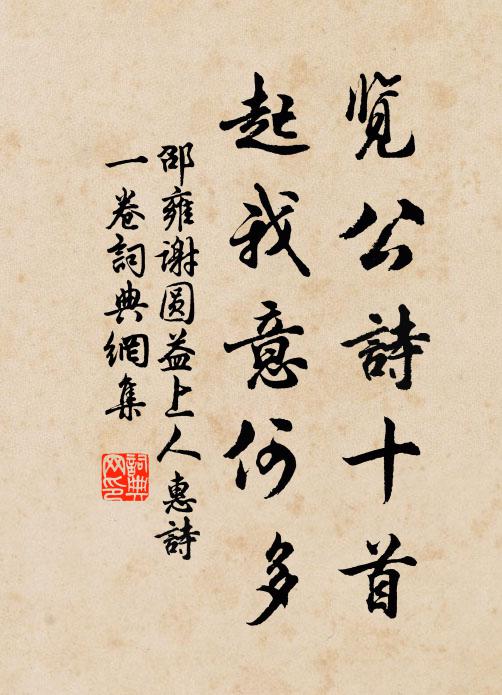 览公詩十首
起我意何多
邵雍谢圆益上人惠詩
一卷詞典網集
詞典网印